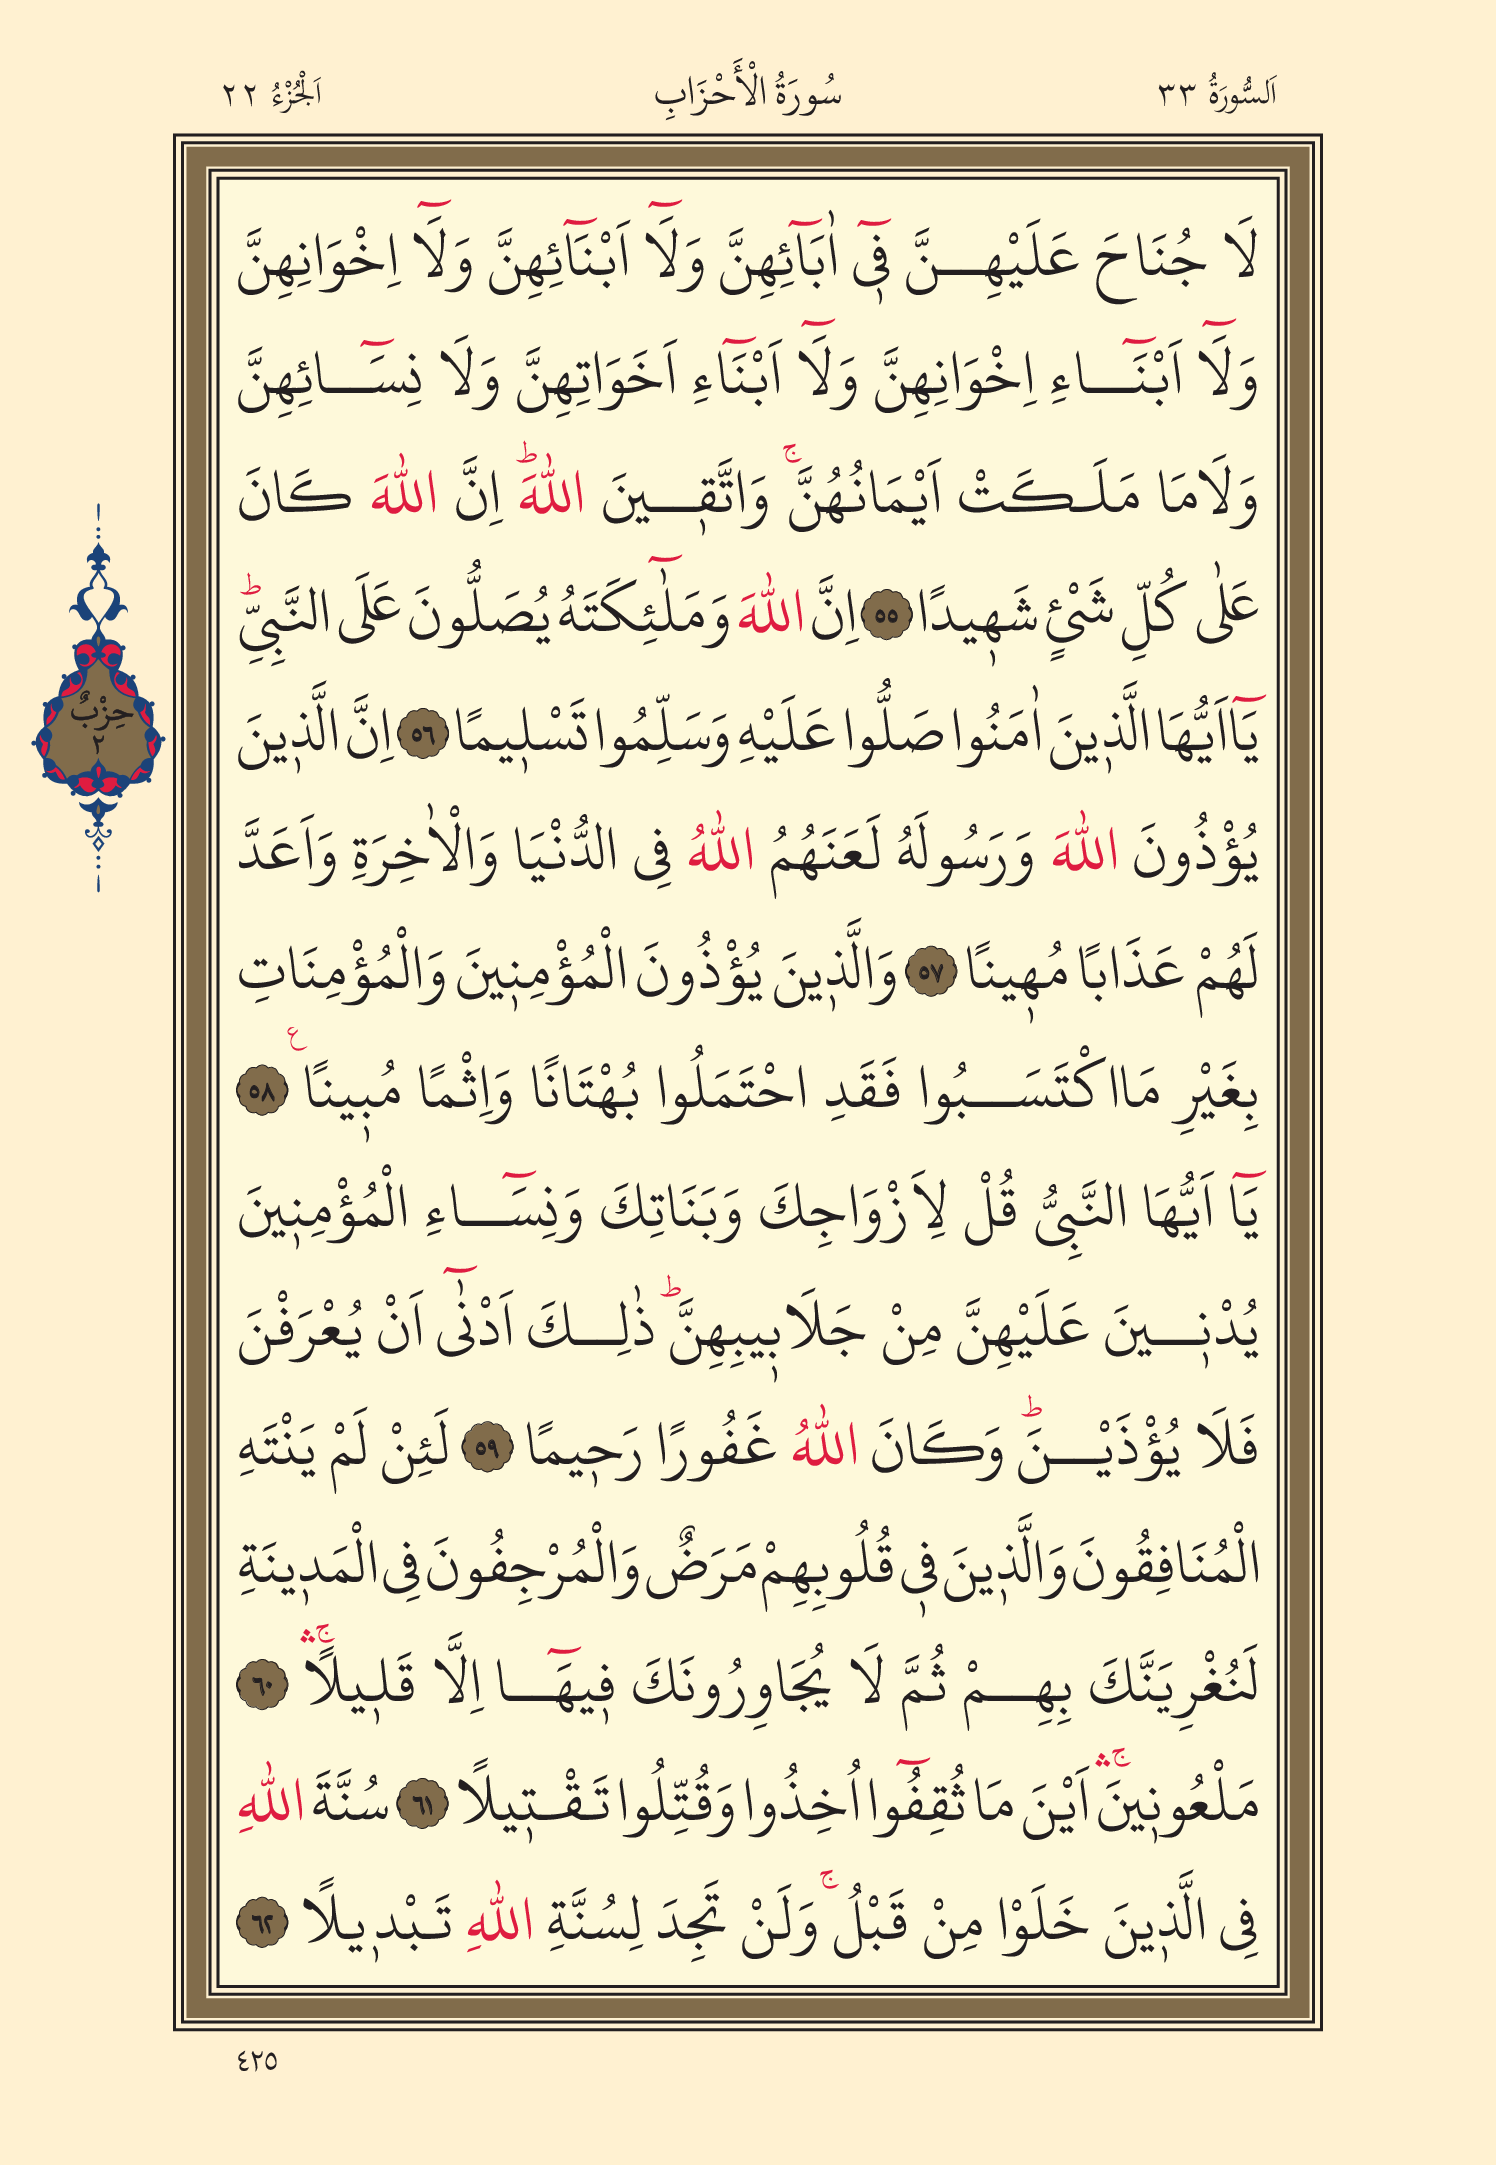 اَلسُّورَةُ ٣٣ سُورَةُ الْأَحْزَابِ اَلْجُزْءُ ٢٢
لَا جُنَاحَ عَلَيْهِنَّ فٖٓى اٰبَٓائِهِنَّ وَلَٓا اَبْنَٓائِهِنَّ وَلَٓا اِخْوَانِهِنَّ
وَلَٓا اَبْنَٓاءِ اِخْوَانِهِنَّ وَلَٓا اَبْنَٓاءِ اَخَوَاتِهِنَّ وَلَا نِسَٓائِهِنَّ
وَلَامَا مَلَكَتْ اَيْمَانُهُنَّۚ وَاتَّقٖينَ اللّٰهَۜ اِنَّ اللّٰهَ كَانَ
عَلٰى كُلِّ شَىْءٍ شَهٖيدًا ٥٥ اِنَّ اللّٰهَ وَمَلٰٓئِكَتَهُ يُصَلُّونَ عَلَى النَّبِىِّۜ
يَٓااَيُّهَا الَّذٖينَ اٰمَنُوا صَلُّوا عَلَيْهِ وَسَلِّمُوا تَسْلٖيمًا ٥٦ اِنَّ الَّذٖينَ
يُؤْذُونَ اللّٰهَ وَرَسُولَهُ لَعَنَهُمُ اللّٰهُ فِى الدُّنْيَا وَالْاٰخِرَةِ وَاَعَدَّ
لَهُمْ عَذَابًا مُهٖينًا ٥٧ وَالَّذٖينَ يُؤْذُونَ الْمُؤْمِنٖينَ وَالْمُؤْمِنَاتِ
بِغَيْرِ مَااكْتَسَبُوا فَقَدِ احْتَمَلُوا بُهْتَانًا وَاِثْمًا مُبٖينًا ع ٥٨
يَٓا اَيُّهَا النَّبِىُّ قُلْ لِاَزْوَاجِكَ وَبَنَاتِكَ وَنِسَٓاءِ الْمُؤْمِنٖينَ
يُدْنٖينَ عَلَيْهِنَّ مِنْ جَلَابٖيبِهِنَّۜ ذٰلِكَ اَدْنٰٓى اَنْ يُعْرَفْنَ
فَلَا يُؤْذَيْنَۜ وَكَانَ اللّٰهُ غَفُورًا رَحٖيمًا ٥٩ لَئِنْ لَمْ يَنْتَهِ
الْمُنَافِقُونَ وَالَّذٖينَ فٖى قُلُوبِهِمْ مَرَضٌ وَالْمُرْجِفُونَ فِى الْمَدٖينَةِ
لَنُغْرِيَنَّكَ بِهِمْ ثُمَّ لَا يُجَاوِرُونَكَ فٖيهَٓا اِلَّا قَلٖيلًاۚۛ ٦٠
مَلْعُونٖينَۚۛ اَيْنَ مَا ثُقِفُٓوا اُخِذُوا وَقُتِّلُوا تَقْتٖيلًا ٦١ سُنَّةَ اللّٰهِ
فِى الَّذٖينَ خَلَوْا مِنْ قَبْلُۚ وَلَنْ تَجِدَ لِسُنَّةِ اللّٰهِ تَبْدٖيلًا ٦٢
حِزْبٌ
٢
٤٢٥